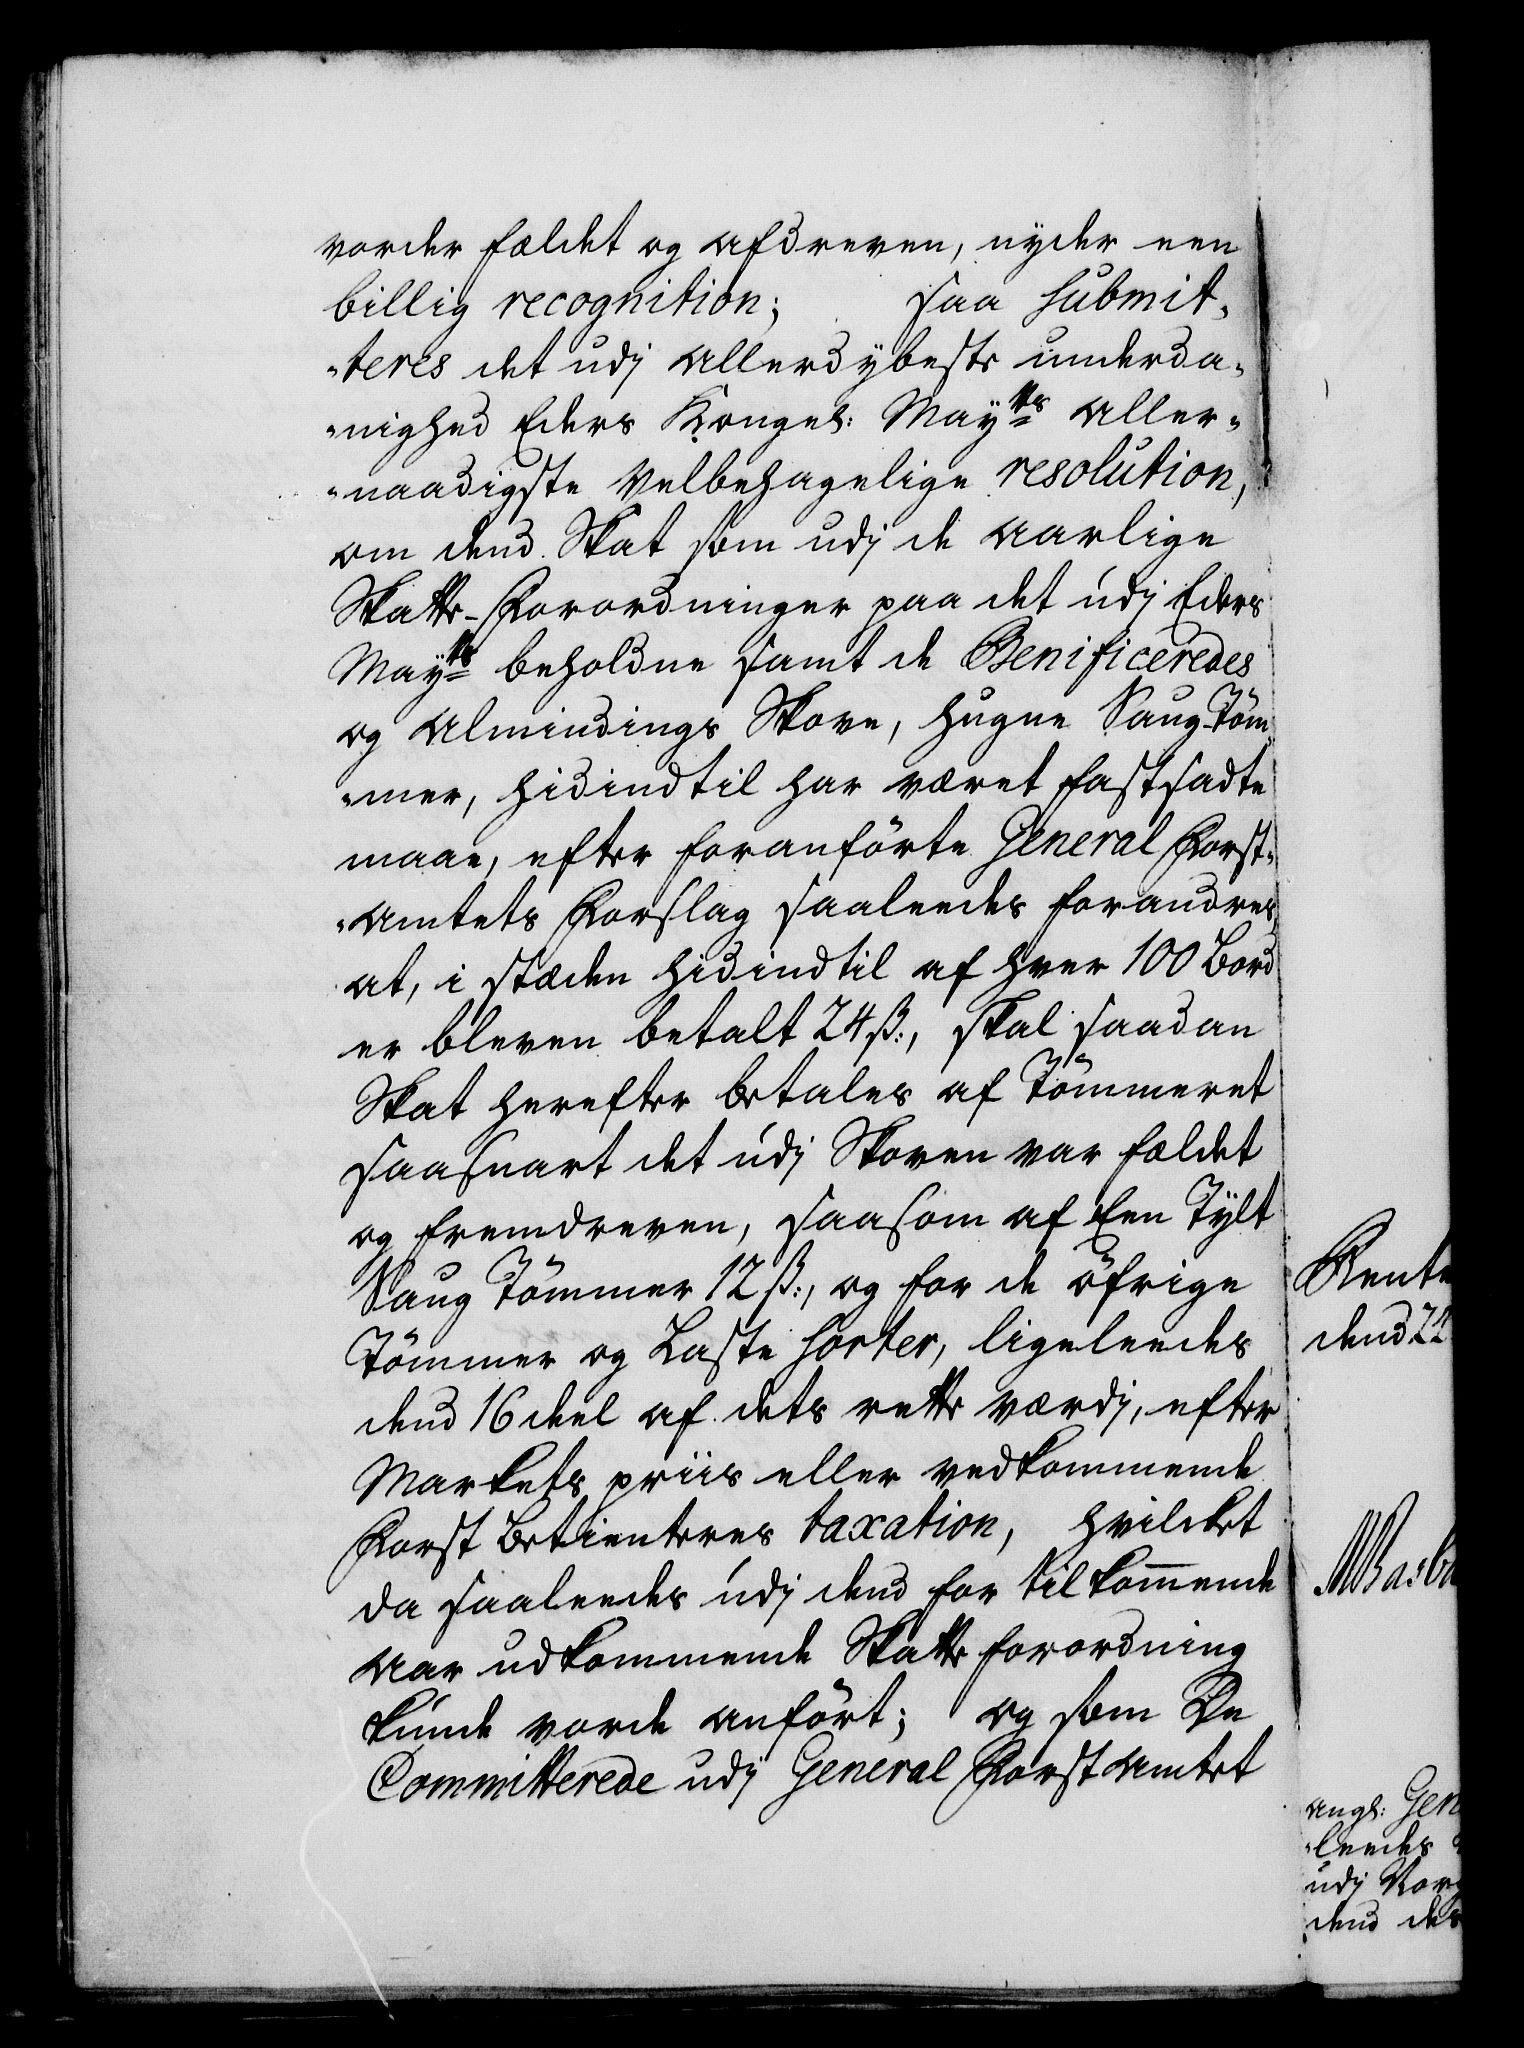 vorder fældet og afdreven, nyder een
billig recognition; saa submit-
-teres det udj allerdybeste underda-
-nighed Eders Kongel: Mayts aller-
-naadigste velbehagelige resolution,
om dend Skat som udj de aarlige
Skatte-Forordninger paa det udj Eders
Mayts beholdne samt de Benificeredes
og Almindings Skove, hugne Saug-Töm-
-mer, hidindtil har været fastsadte
maae, efter foranförte General Forst-
-Amtets Forslag saaleedes forandres,
at, i stæden hidindtil af hver 100 Bord
er bleven betalt 24 ß:, skal saadan
Skat herefter betales af Tömmeret
saasnart det udj Skoven var fældet
og fremdreven, saasom af Een Tylt
Saug Tömmer 12 ß:, og for de öfrige
Tömmer og Laste sorter, ligeleedes
dend 16 deel af dets rette værdj, efter
Markets priis eller vedkommende
Forst Betienteres taxation, hvilcket
da saaleedes udj dend for tilkom̅ende
Aar udkommende Skatte forordning
kunde vorde anfört; og som De
Committerede udj General Forst Amtet
Rente
dend 22
angl: Gen
-leedes
udj Nor
dend des